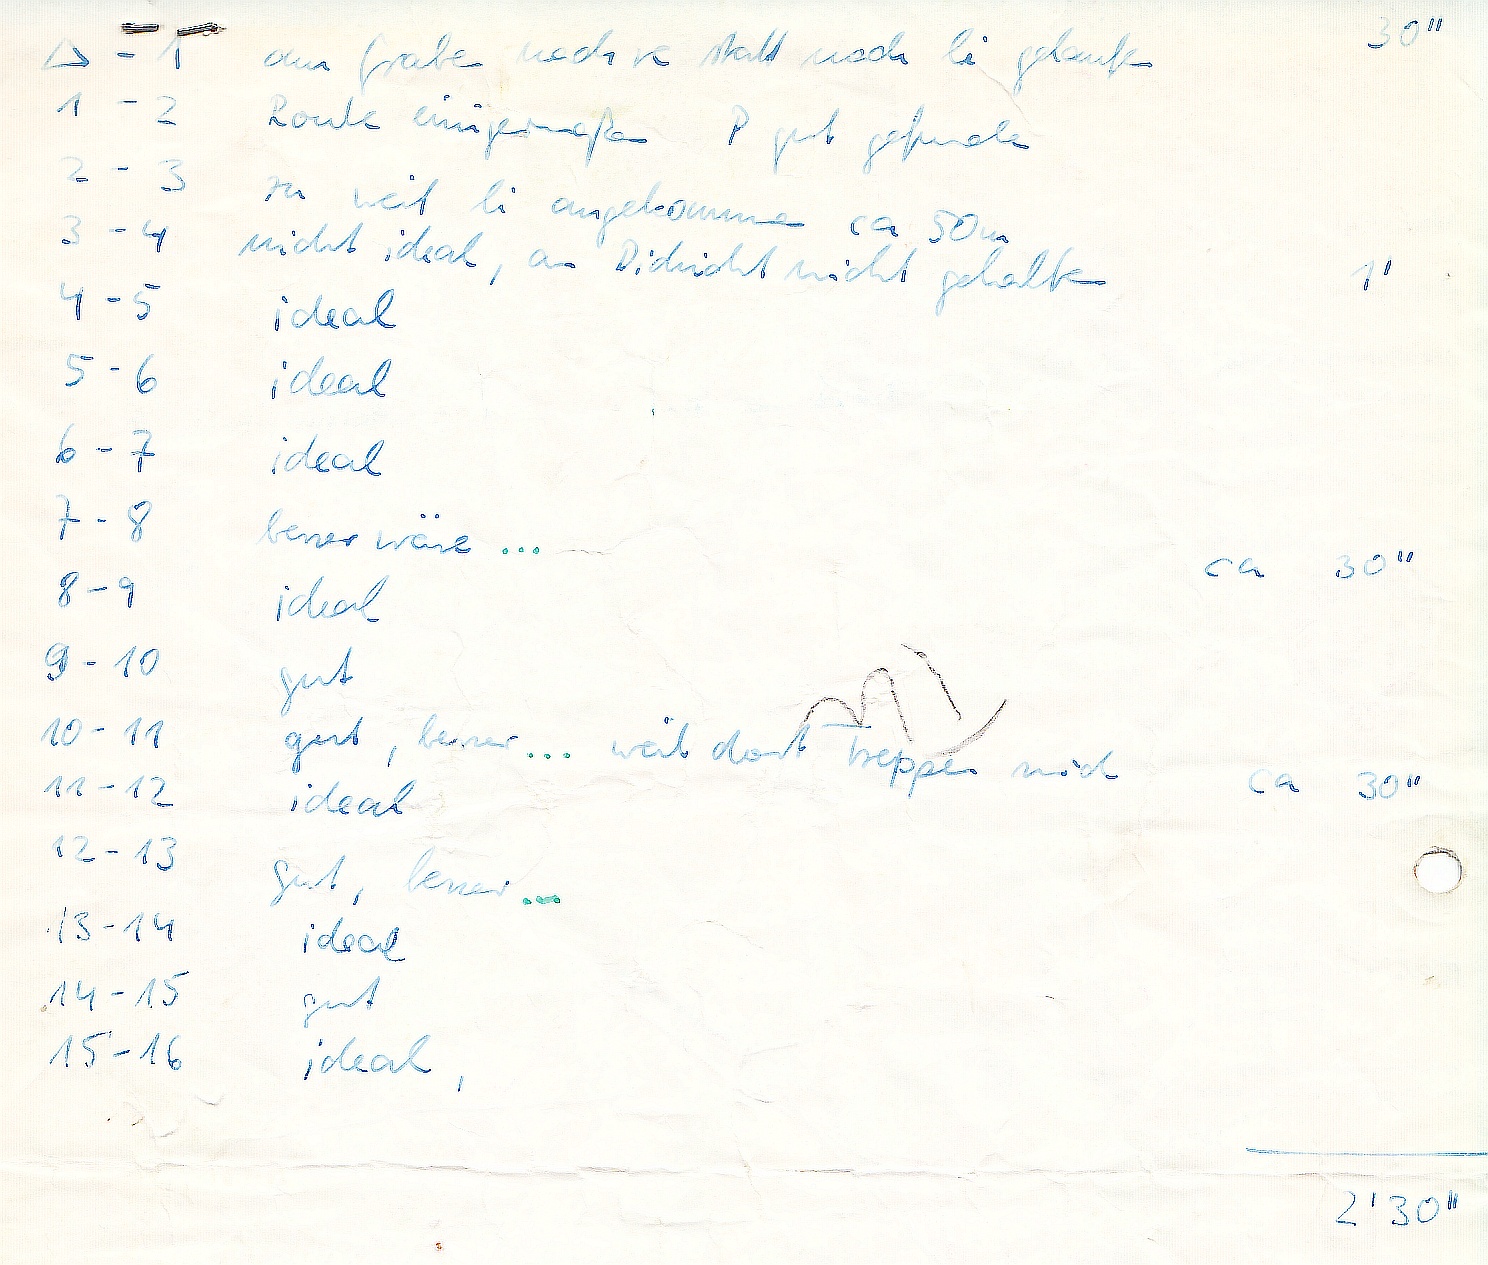 △ - 1 am Graben nach re statt nach li gelaufen 30"
1 - 2 Route einigermaßen P gut gefunden
2 - 3 zu weit li angekommen ca 50m
3 - 4 nicht ideal, an Dickicht nicht gehalten 1'
4 - 5 ideal
5 - 6 ideal
6 - 7 ideal
7 - 8 besser wäre ... ca 30"
8 - 9 ideal
9 - 10 gut
10 - 11 gut, besser ... weil dort Treppen sind ca 30"
11 - 12 ideal
12 - 13 gut, besser ...
13 - 14 ideal
14 - 15 gut
15 - 16 ideal,
2'30"